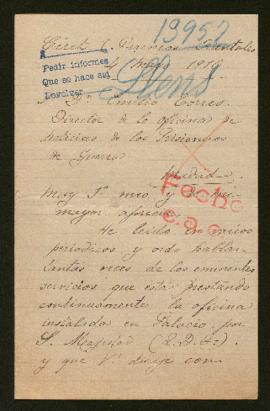 13957
Pirineos Orientales
Mayo 1919
Pedir informes
Que se hace así
Devolver
D. Emilio Torres
Director de la oficina de
noticias de los Prisioneros
de Guerra
Madrid
Muy Sr mío y de mi
mayor aprecio
He leído en varios
periódicos y oído hablar
tantas veces de los eminentes
servicios que está prestando
continuamente la oficina
instalada en Palacio por
S. Majestad (Q. D. G.)
y que V. dirije con
Fecho